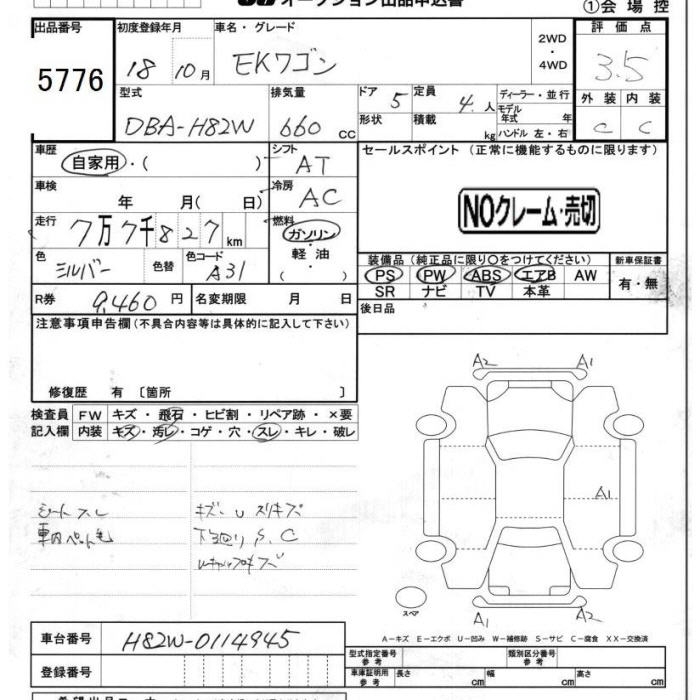 オークション出品申込書
①会場控
出品番号 初度登録年月 車名・グレード 評価点
5776 18 10月 EKワゴン 2WD・4WD 3.5
型式 排気量 ドア 5 定員 4.人 ディーラー・並行 外装 内装
DBA-H82W 660cc 形状 積載 kg モデル年式 年 ハンドル 左・右 C C
車歴 自家用・( ) シフト AT セールスポイント (正常に機能するものに限ります)
車検 年 月( 日) 冷房 AC
NOクレーム・売切
走行 7万7千827km 燃料 ガソリン・軽油・( )
色 シルバー 色替 色コード A31
装備品(純正品に限り○をつけてください) 新車保証書
PS PW ABS エアB AW 有・無
SR ナビ TV 本革
R券 9,460円 名変期限 月 日 後日品
注意事項申告欄(不具合内容等は具体的に記入して下さい)
修復歴 有 〔箇所 〕
検査員 FW キズ・飛石・ヒビ割・リペア跡・×要
記入欄 内装 キズ・汚レ・コゲ・穴・スレ・キレ・破レ
シートスレ キズ・U スリキズ
車内ペット毛 下廻り S、C
A2 A1
A1
スペア
A1 A2
A−キズ E−エクボ U−凹み W−補修跡 S−サビ C−腐食 XX−交換済
車台番号 H82W-0114945
型式指定番号 参考 類別区分番号 参考
登録番号 車庫証明用 参考 長さ cm 幅 cm 高さ cm